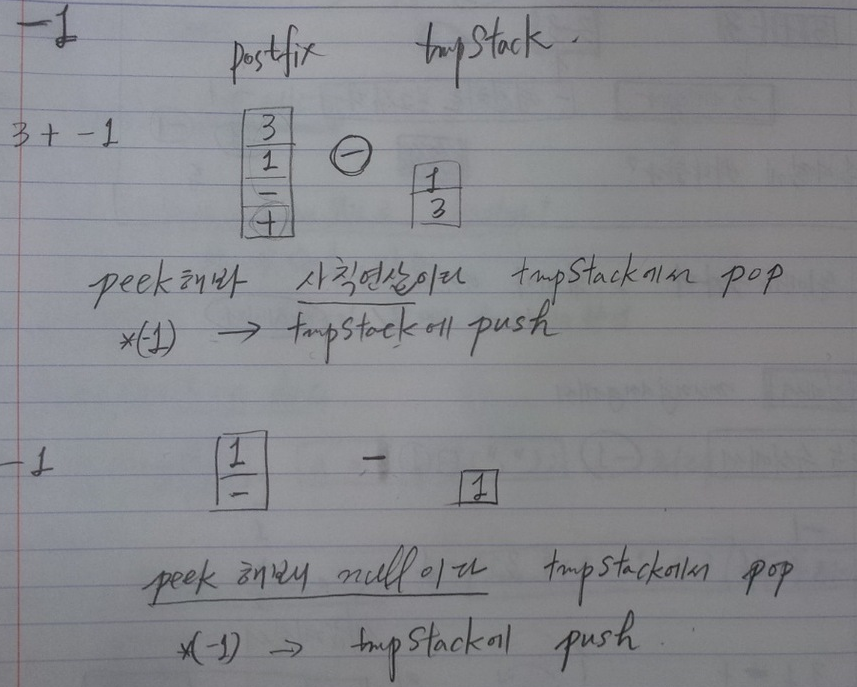 -1
postfix tmpStack.
3 + -1
3
1
-
+
-
1
3
peek해봐 사칙연살이다 tmpStack에서 pop
*(-1) → tmpStack에 push
-1
1
-
-
1
peek 해보면 null이다 tmpStack에서 pop
*(-1) → tmpStack에 push.